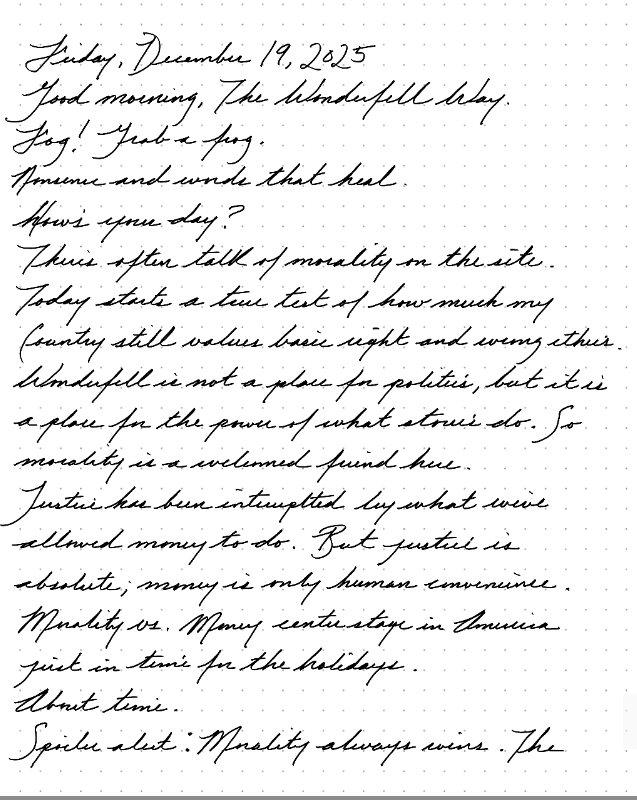 Friday, December 19, 2025
Good morning, The Wonderfell Way.
Fog! Grab a frog.
Nonsense and words that heal.
How's your day?
There's often talk of morality on the site.
Today starts a true test of how much my
Country still values basic right and wrong ethics.
Wonderfell is not a place for politics, but it is
a place for the power of what stories do. So
morality is a welcomed friend here.
Justice has been interuptted by what we've
allowed money to do. But justice is
absolute; money is only human convenience.
Morality vs. Money center stage in America
just in time for the holidays.
About time.
Spoiler alert: Morality always wins. The